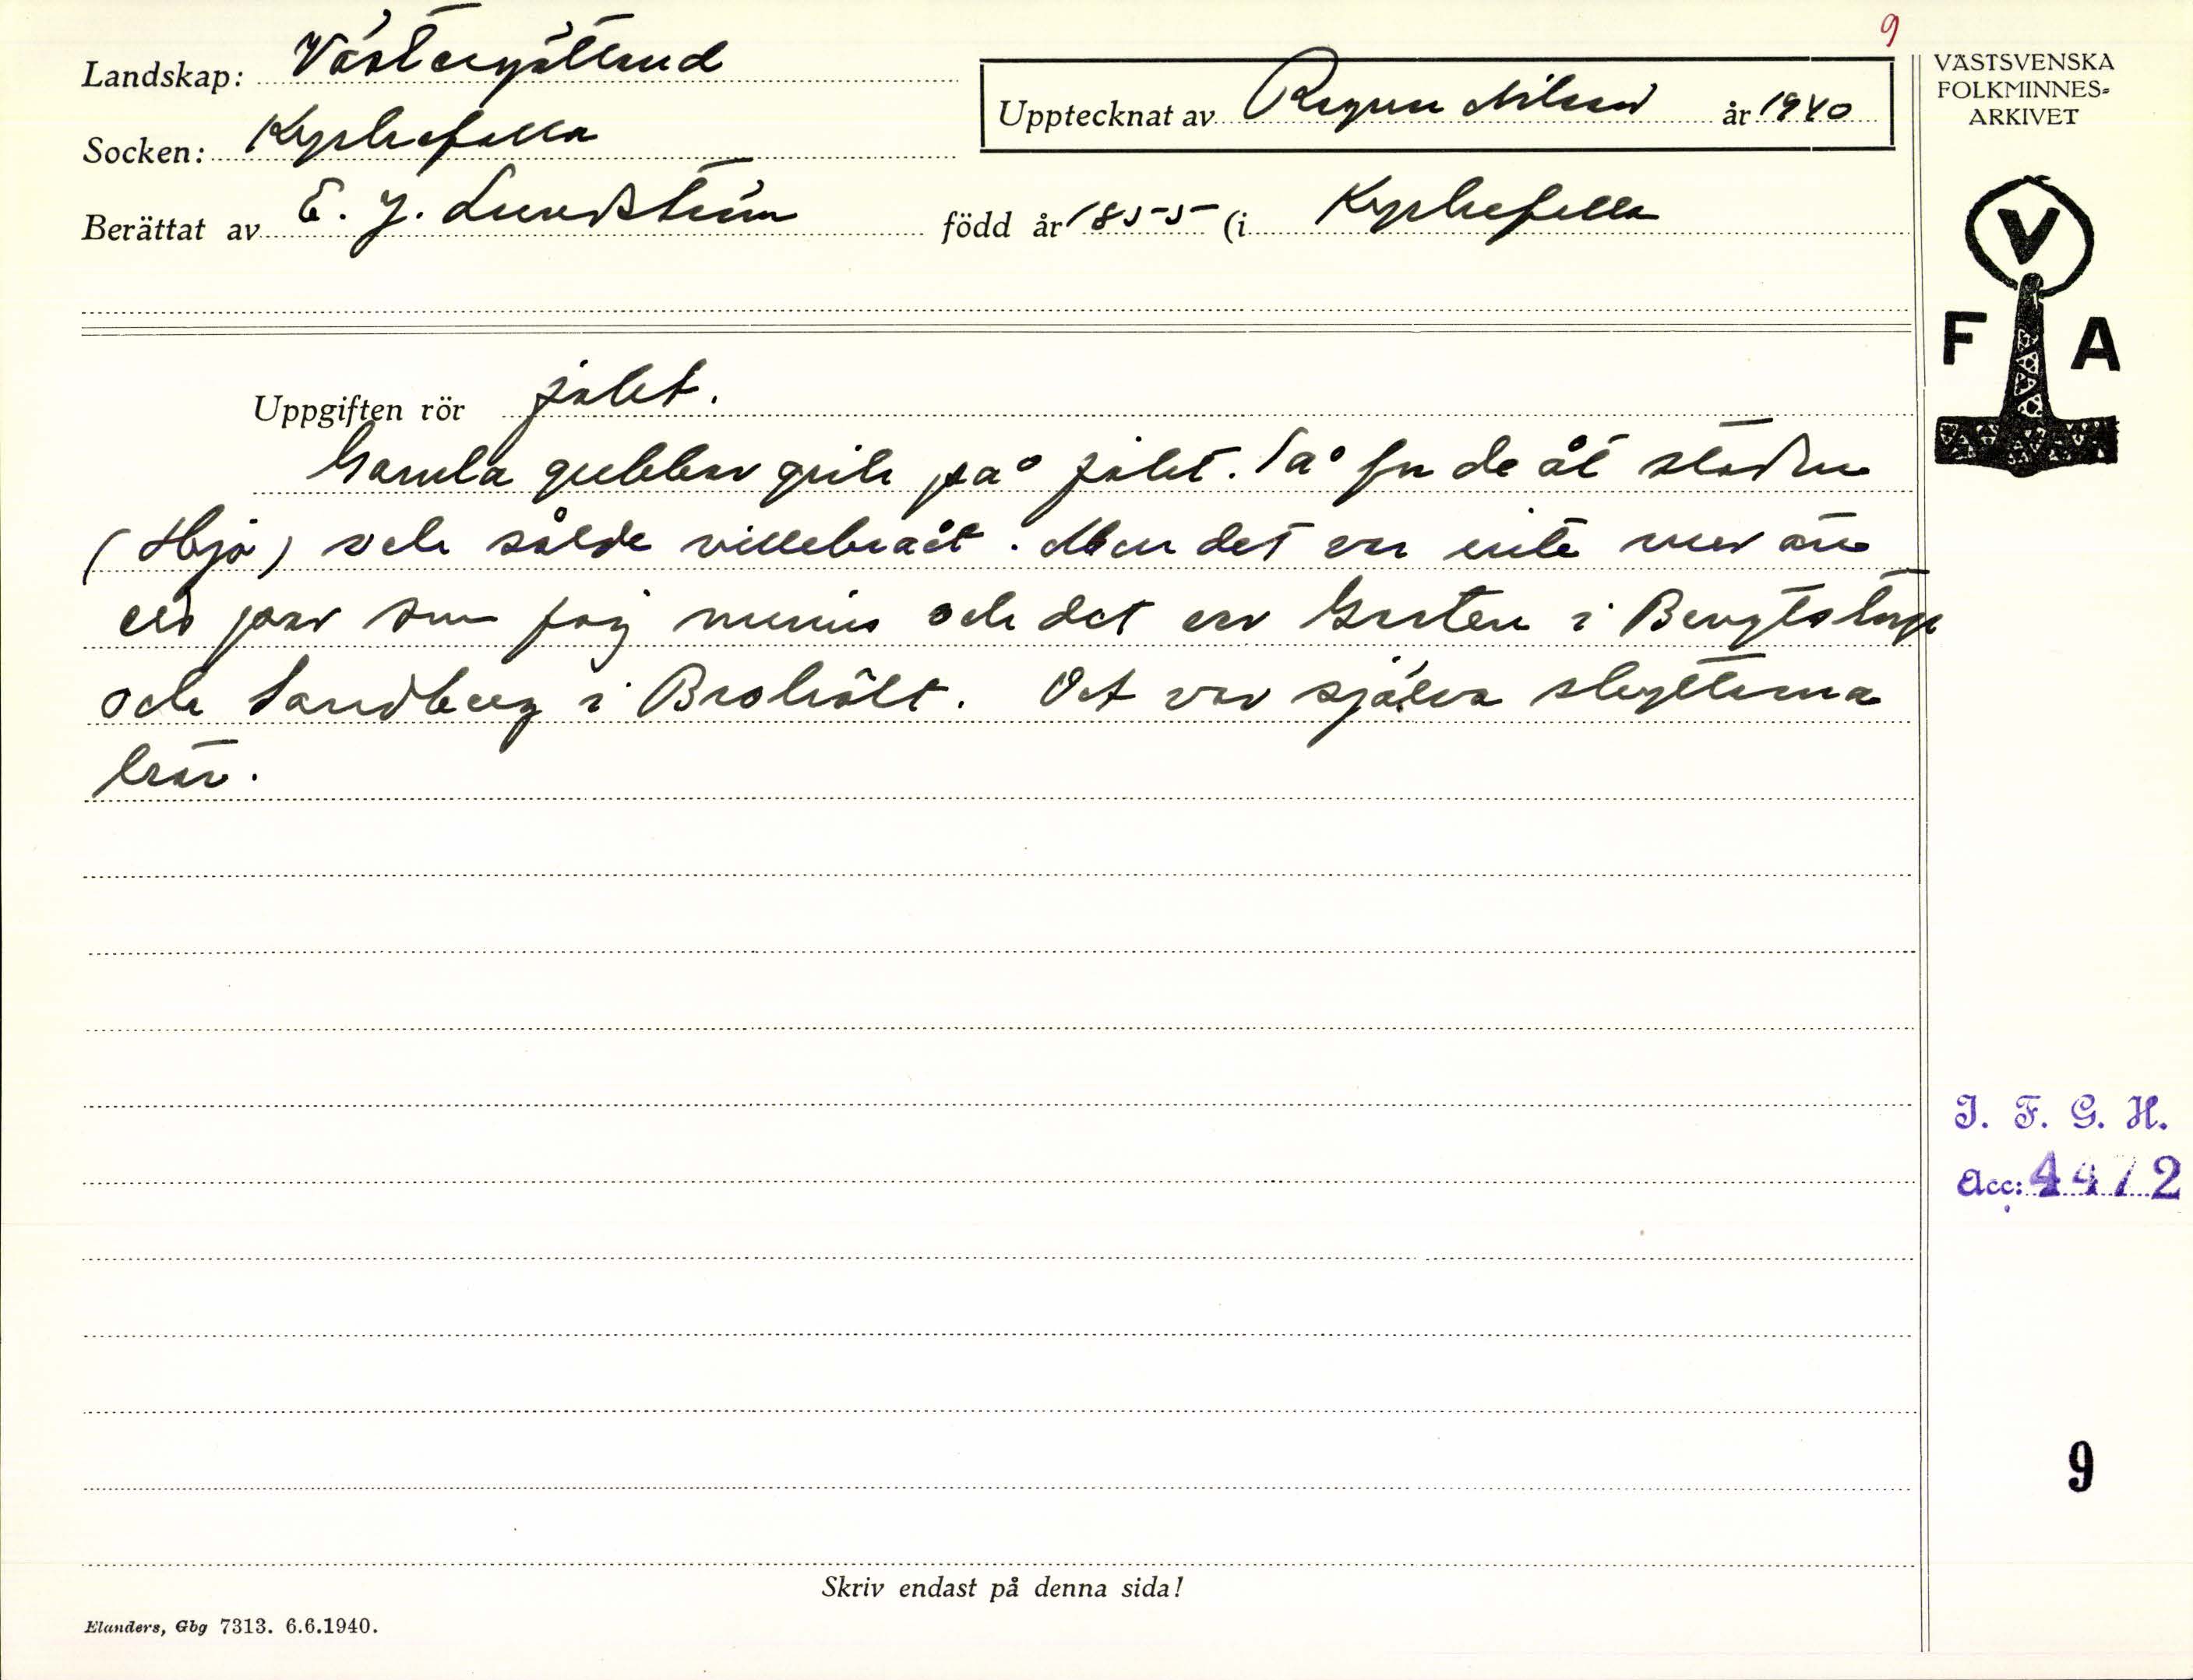 9
Landskap: Västergötland
Socken: Kyrkefalla
Berättat av E. J. Lundström född år 1855 (i Kyrkefalla
Upptecknat av Ragnar Nilsson år 1940
VÄSTSVENSKA
FOLKMINNES-
ARKIVET
V
F A
Uppgiften rör jakt.
Gamla gubbar gick på jakt. Så for de åt staden
(Hjo) och sålde villebråt. Men det var inte mer än
ett par som jag minns och det var Gusten i Bengtstorp
och Sandberg i Broholt. Det var själva skyttarna
här.
I. F. G. H.
Acc: 4472
9
Skriv endast på denna sida!
Elanders, Gbg 7313. 6.6.1940.